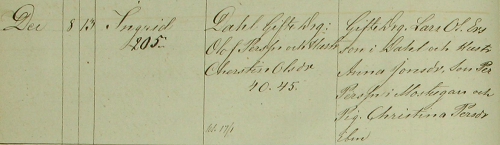 Dec 8 13 Ingrid
205.
Dahl Gifte Drg:
Ol. Persson och Hustr
Chersten Olsdr
40. 45.
Gifte Drg. Lars Ol. Ers
son i Dahl och Hustr
Anna Jonsdr, Son Per
Persson i och
Pig. Christina Persdr